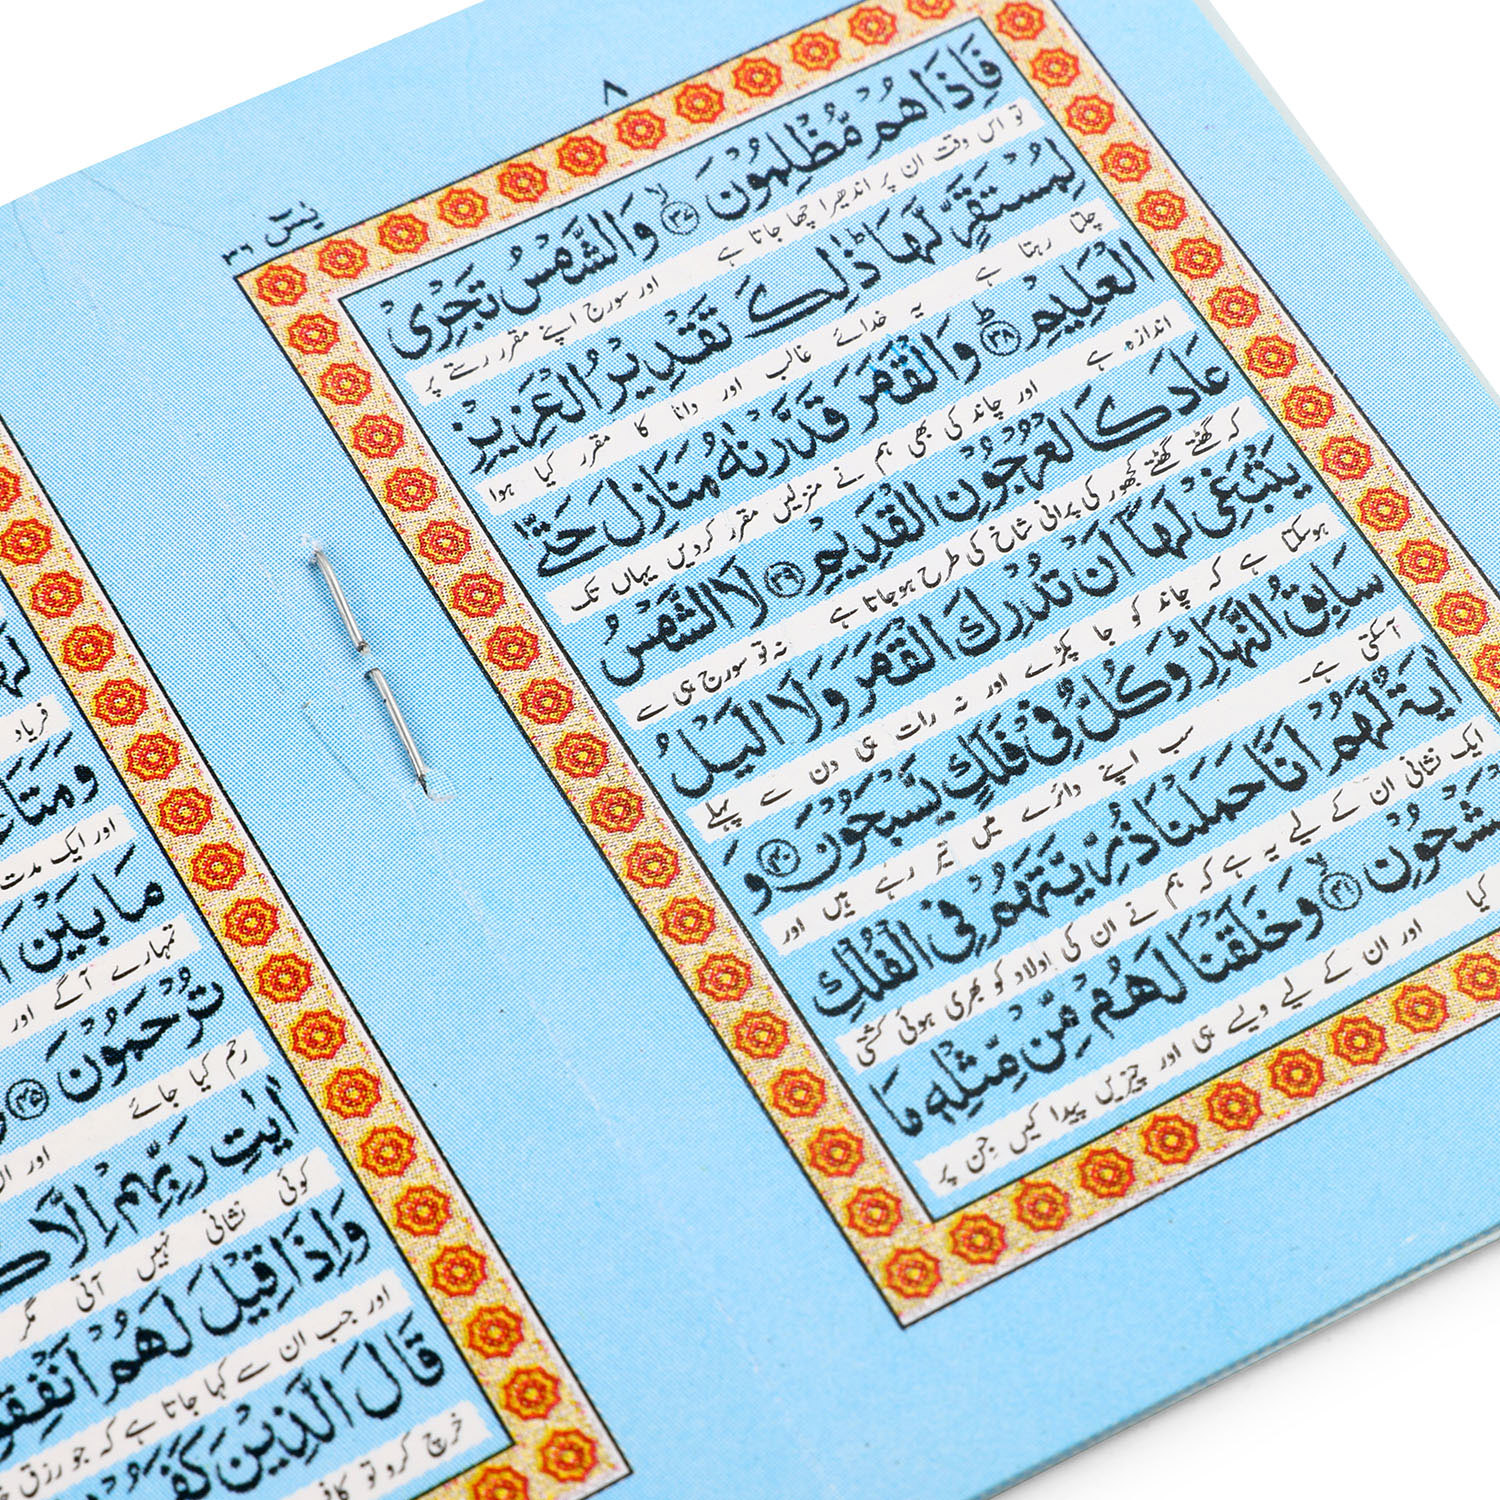 ٨
یٰسٓ ٣٦
فَاِذَا هُمْ مُّظْلِمُوْنَ ﴿۳۷﴾ۙ وَالشَّمْسُ تَجْرِیْ
تو اس وقت ان پر اندھیرا چھا جاتا ہے اور سورج اپنے مقرر رستے پر
لِمُسْتَقَرٍّ لَّهَا ؕ ذٰلِكَ تَقْدِیْرُ الْعَزِیْزِ
چلتا رہتا ہے یہ خدائے غالب اور دانا کا مقرر کیا ہوا
الْعَلِیْمِ ﴿۳۸﴾ؕ وَالْقَمَرَ قَدَّرْنٰهُ مَنَازِلَ حَتّٰی
اندازہ ہے اور چاند کی بھی ہم نے منزلیں مقرر کردیں یہاں تک
عَادَ كَالْعُرْجُوْنِ الْقَدِیْمِ ﴿۳۹﴾ لَا الشَّمْسُ
کہ گھٹتے گھٹتے کھجور کی پرانی شاخ کی طرح ہوجاتا ہے نہ تو سورج ہی سے
یَنْۢبَغِیْ لَهَاۤ اَنْ تُدْرِكَ الْقَمَرَ وَلَا الَّیْلُ
ہوسکتا ہے کہ چاند کو جا پکڑے اور نہ رات ہی دن سے پہلے
سَابِقُ النَّهَارِ ؕ وَكُلٌّ فِیْ فَلَكٍ یَّسْبَحُوْنَ ﴿۴۰﴾ وَ
آسکتی ہے۔ سب اپنے دائرے میں تیر رہے ہیں اور
اٰیَةٌ لَّهُمْ اَنَّا حَمَلْنَا ذُرِّیَّتَهُمْ فِی الْفُلْكِ
ایک نشانی ان کے لیے یہ ہے کہ ہم نے ان کی اولاد کو بھری ہوئی کشتی
مَشْحُوْنِ ﴿۴۱﴾ۙ وَخَلَقْنَا لَهُمْ مِّنْ مِّثْلِهٖ مَا
کیا اور ان کے لیے ویسے ہی اور چیزیں پیدا کیں جن پر
فریاد
وَمَتَاعًا
اور ایک مدت
مَا بَیْنَ
تمہارے آگے اور
تُرْحَمُوْنَ ﴿۴۵﴾
رحم کیا جائے اور
اٰیٰتِ رَبِّهِمْ اِلَّا
کوئی نشانی نہیں آتی مگر
وَاِذَا قِیْلَ لَهُمْ اَنْفِقُوْ
اور جب ان سے کہا جاتا ہے کہ جو رزق
قَالَ الَّذِیْنَ كَفَرُوْ
خرچ کرو تو